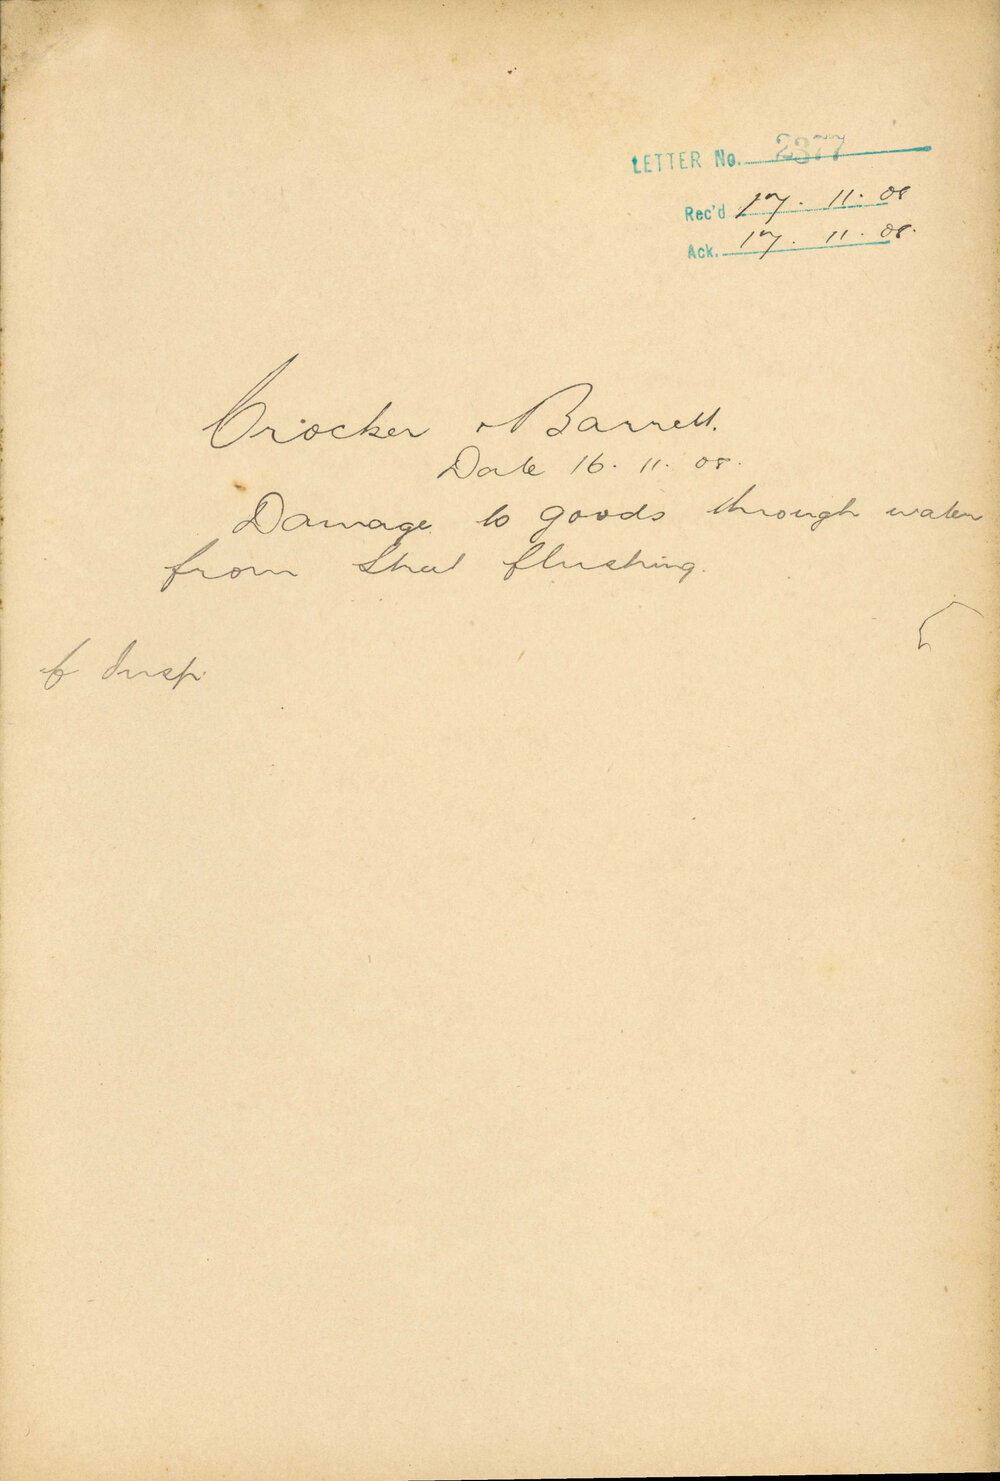 LETTER No. 2377
Rec'd 17. 11. 08
Ack. 17. 11. 08.
Crocker & Barrett.
Date 16. 11. 08.
Damage to goods through water
from Street flushing.
Insp.